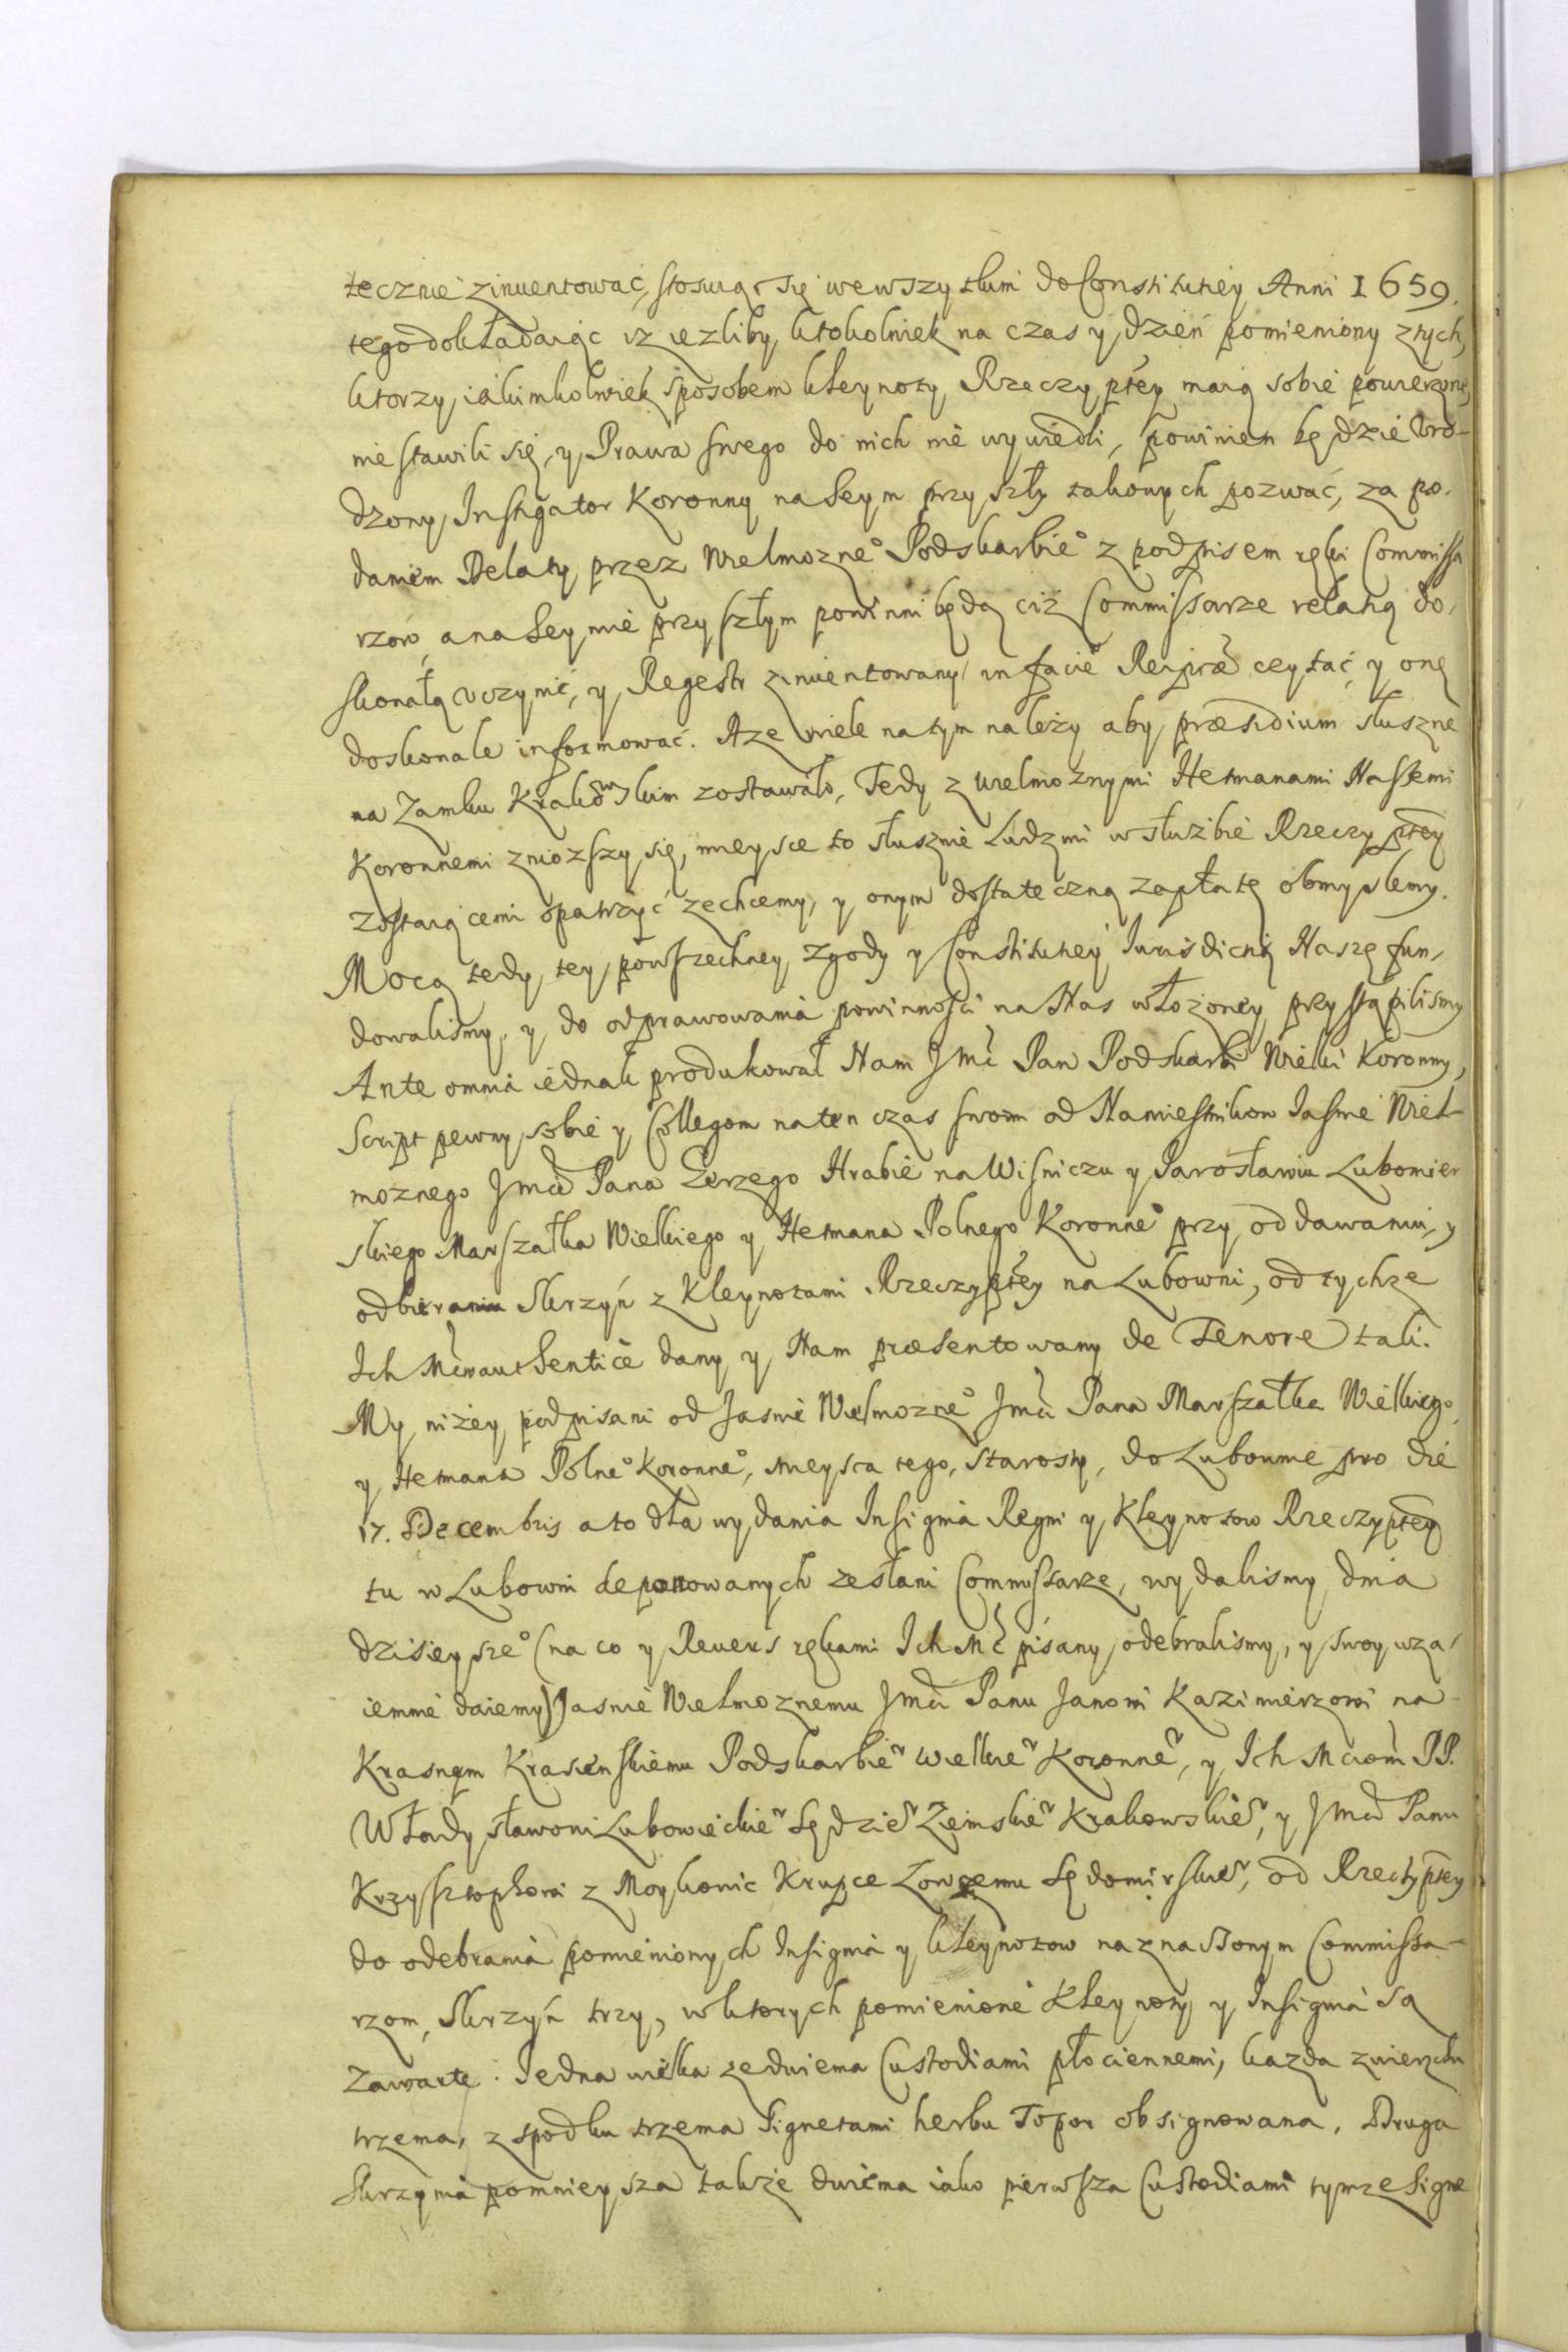 tecznie zinuentować, stosuiąc się wewszytkim do Constitutiey Anni 1659.
tego dokładaiąc iz iezliby, ktokolwiek na czas y dzień pomieniony ztych,
ktorzy iakimkolwiek sposobem kleynoty Rzeczyptey maią sobie powierzone,
nie stawili się, y Prawa swego do nich nie wywiedli, powinien będzie Vro-
dzony Instigator Koronny na Seym przyszły takowych pozwać, za po-
daniem Delaty przez Wielmozne° Podskarbie° z podpisem ręki Commissa
rzow, a na Seymie przyszłym powinni będą ciż Commissarze relatią do-
skonałą vczynić, y Regestr zinuentowany in facie Reipcæ czytać, y onę
doskonale informować. A ze wiele na tym należy aby præsidium słuszne
na Zamku Krakowskim zostawało, Tedy z wielmożnymi Hetmanami Naszemi
Koronnemi zniozszy się, mieysce to słusznie Ludzmi w służbie Rzeczyptey
zostaiącemi opatrzyć zechcemy, y onym dostateczną zapłatę obmyslemy.
Mocą tedy tey powszechney zgody y Constitutiey Iurisdictią Naszę fun-
dowalismy, y do odprawowania powinnosci na Nas włożoney przystąpilismy
Ante omnia iednak produkował Nam Jmć Pan Podskarbi Wielki Koronny,
Script pewny sobie y Collegom na ten czas swoim od Namiestnikow Jasnie Wiel-
moznego Jmci Pana Jerzego Hrabie na Wisniczu y Jarosławiu Lubomier
skiego Marszałka Wielkiego y Hetmana Polnego Koronne° przy oddawaniu, y
odbieraniu Skrzyń z Kleynotami Rzeczyptey na Lubowni, od tychze
Ich Mciow authentice dany y Nam præsentowany de Tenore tali.
My niżey podpisani od Jasnie Wielmozne° Jmci Pana Marszałka Wielkiego
y Hetmana Polne° Koronne°, mieysca tego, Starosty, do Lubownie pro die
17. Decembris a to dla wydania Insignia Regni y Kleynotow Rzeczyptey
tu w Lubowni deponowanych zesłani Commissarze, wydalismy dnia
dzisieysze° (na co y Reuers rękami Ich Mć pisany odebralismy, y swoy wza-
iemnie daiemy) Jasnie Wielmoznemu Jmci Panu Janowi Kazimierzowi na
Krasnym Krasienskiemu Podskarbie Wielkie Koronne, y Ich Mciom PP.
Władysławowi Lubowieckie Sędzie Ziemskie Krakowskie, y Jmci Panu
Krzysztophowi z Moskorzewa Krupce Łowczemu Sędomirskie, od Rzeczyptey
do odebrania pomienionych Insignia y kleynotow naznaczonym Commissa-
rzom, Skrzyń trzy, w ktorych pomienione Kleynoty y Insignia są
zawarte. Jedna wielka ze dwiema Custodiami płociennemi, kazda zwierzchu
trzema, z spodku trzema Signetami herbu Topor obsignowana. Druga
Skrzynia pomnieysza także dwiema iako pierwsza Custodiami tymze Signe